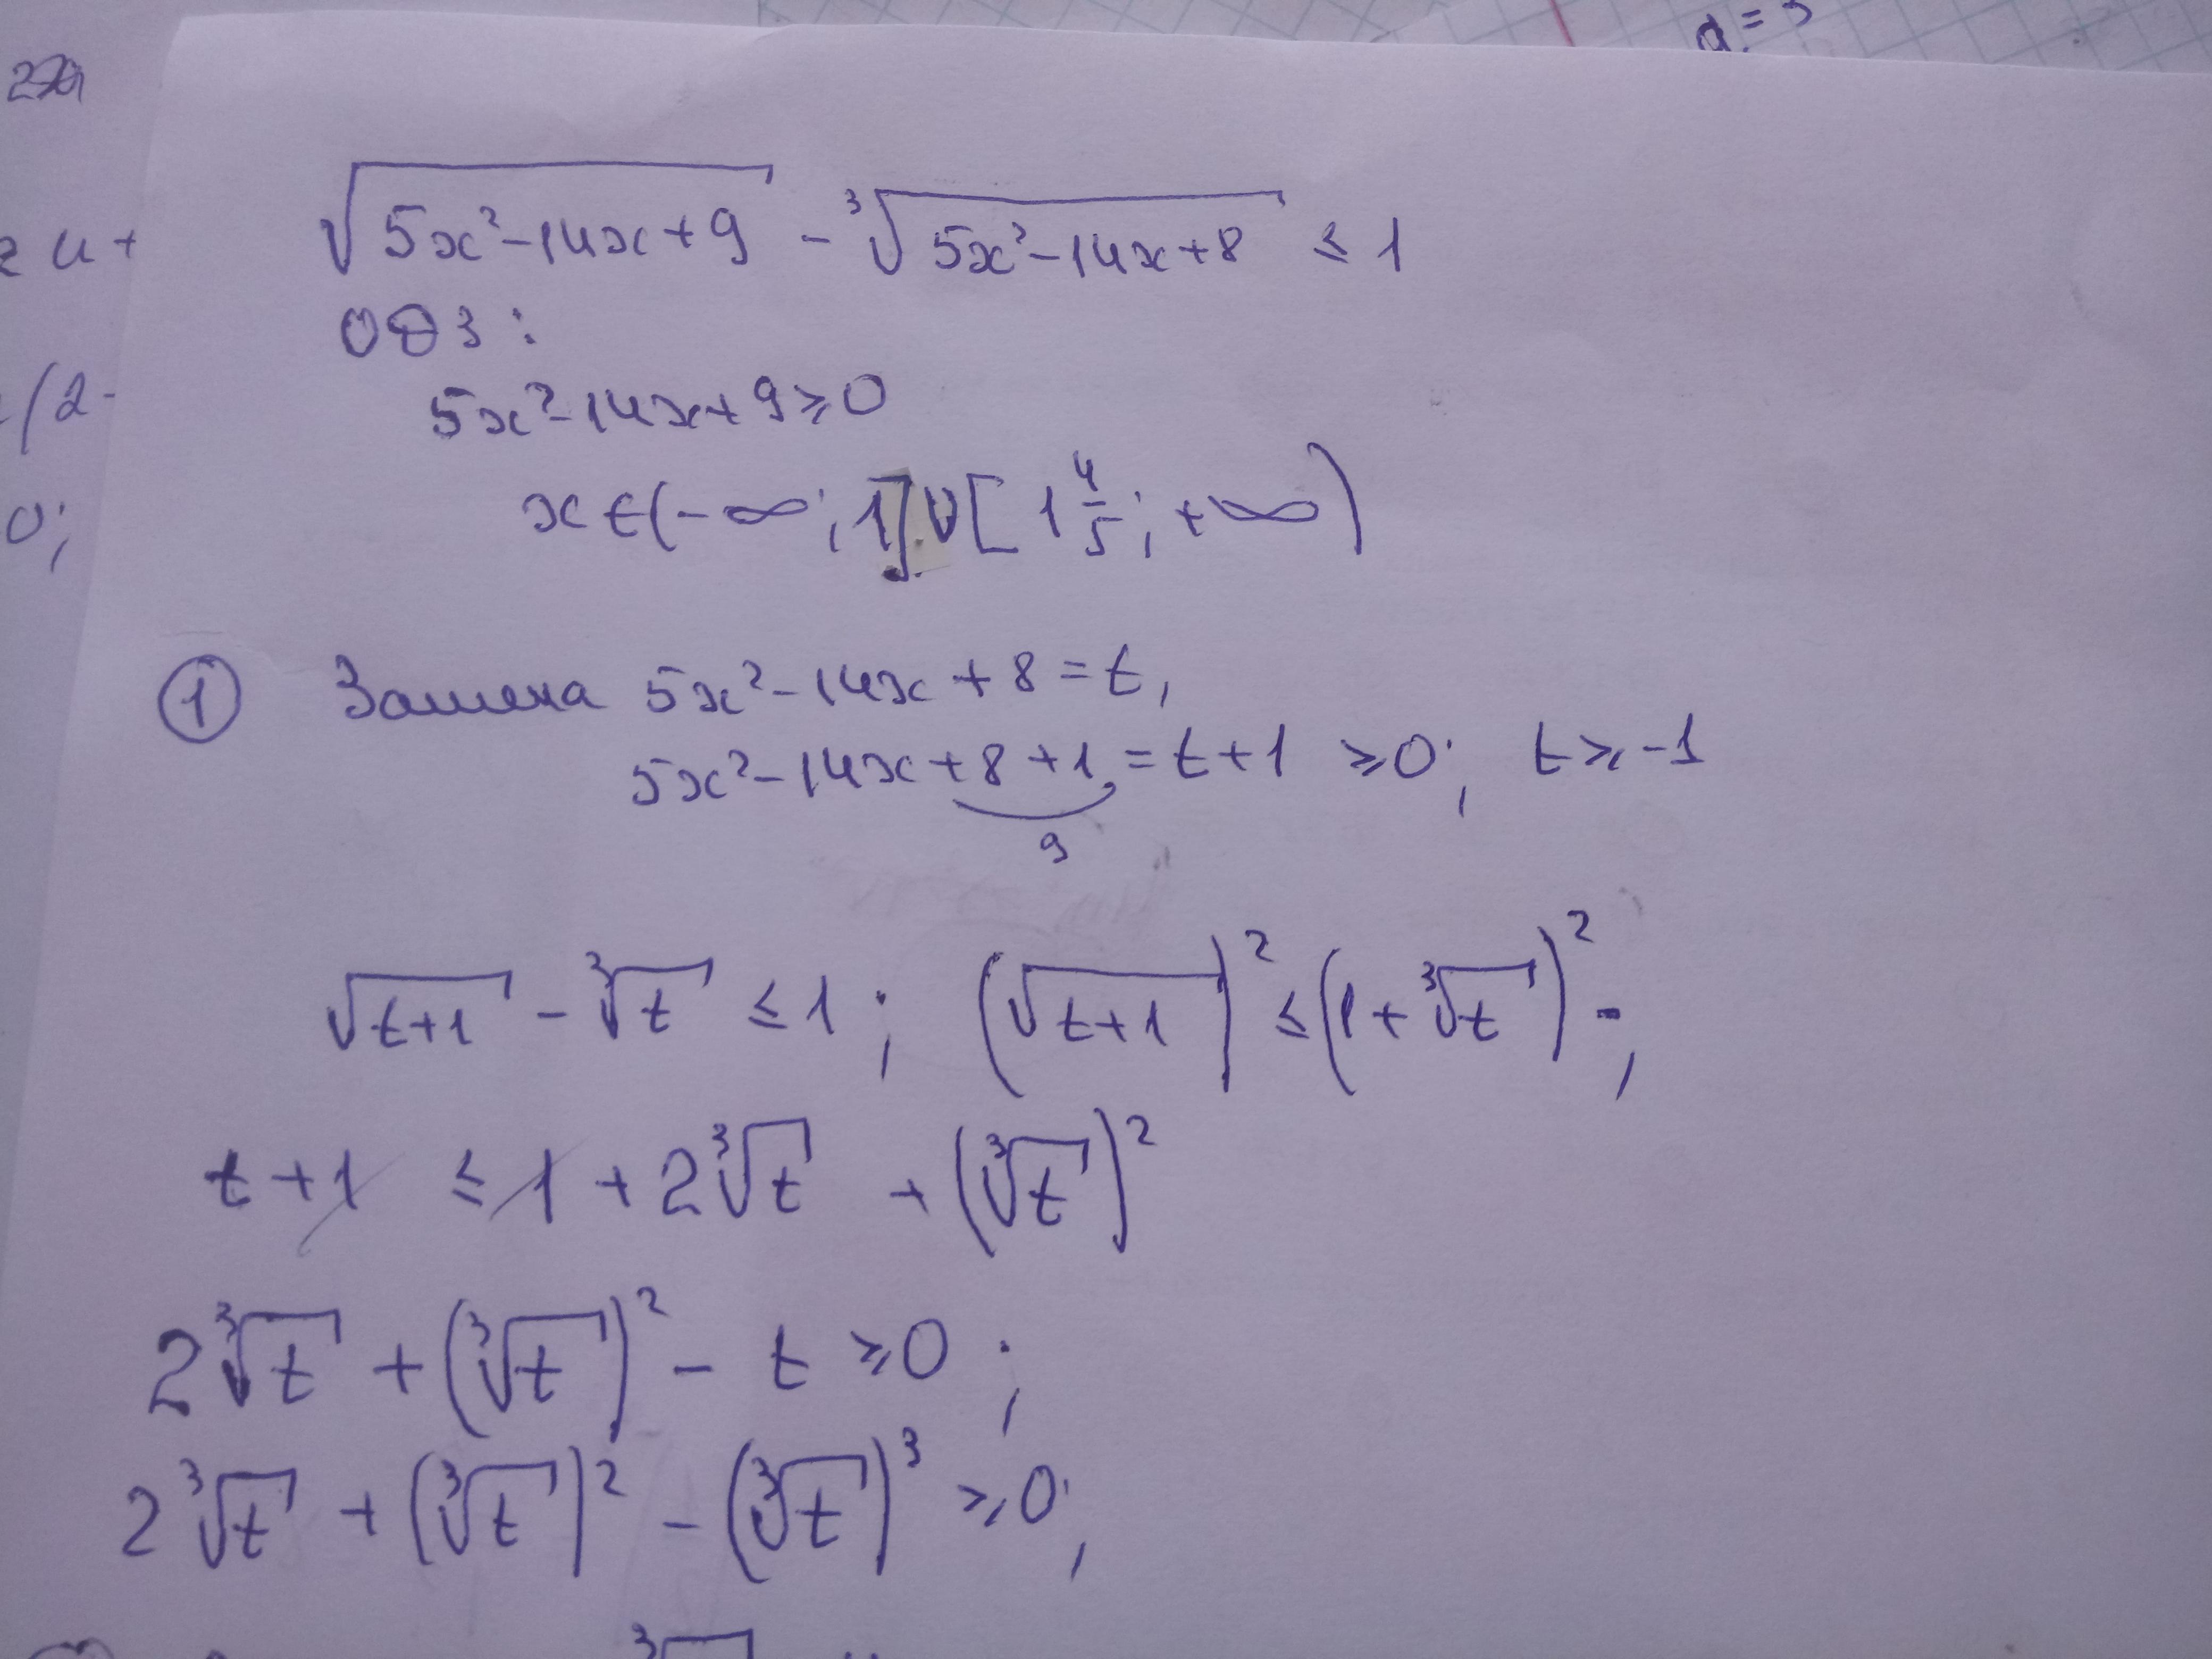 a = 5
229
u +
/(2-
0;
√(5x²-14x+9) - ∛(5x²-14x+8) ≤ 1
ОДЗ:
5x²-14x+9≥0
x ∈ (-∞; 1] ∪ [1 4/5; +∞)
① Замена 5x²-14x+8=t,
5x²-14x+8+1=t+1 ≥0; t≥-1
9
√(t+1) - ∛t ≤ 1; (√(t+1))² ≤ (1+∛t)²;
t+1 ≤ 1 + 2∛t + (∛t)²
2∛t + (∛t)² - t ≥0;
2∛t + (∛t)² - (∛t)³ ≥0;